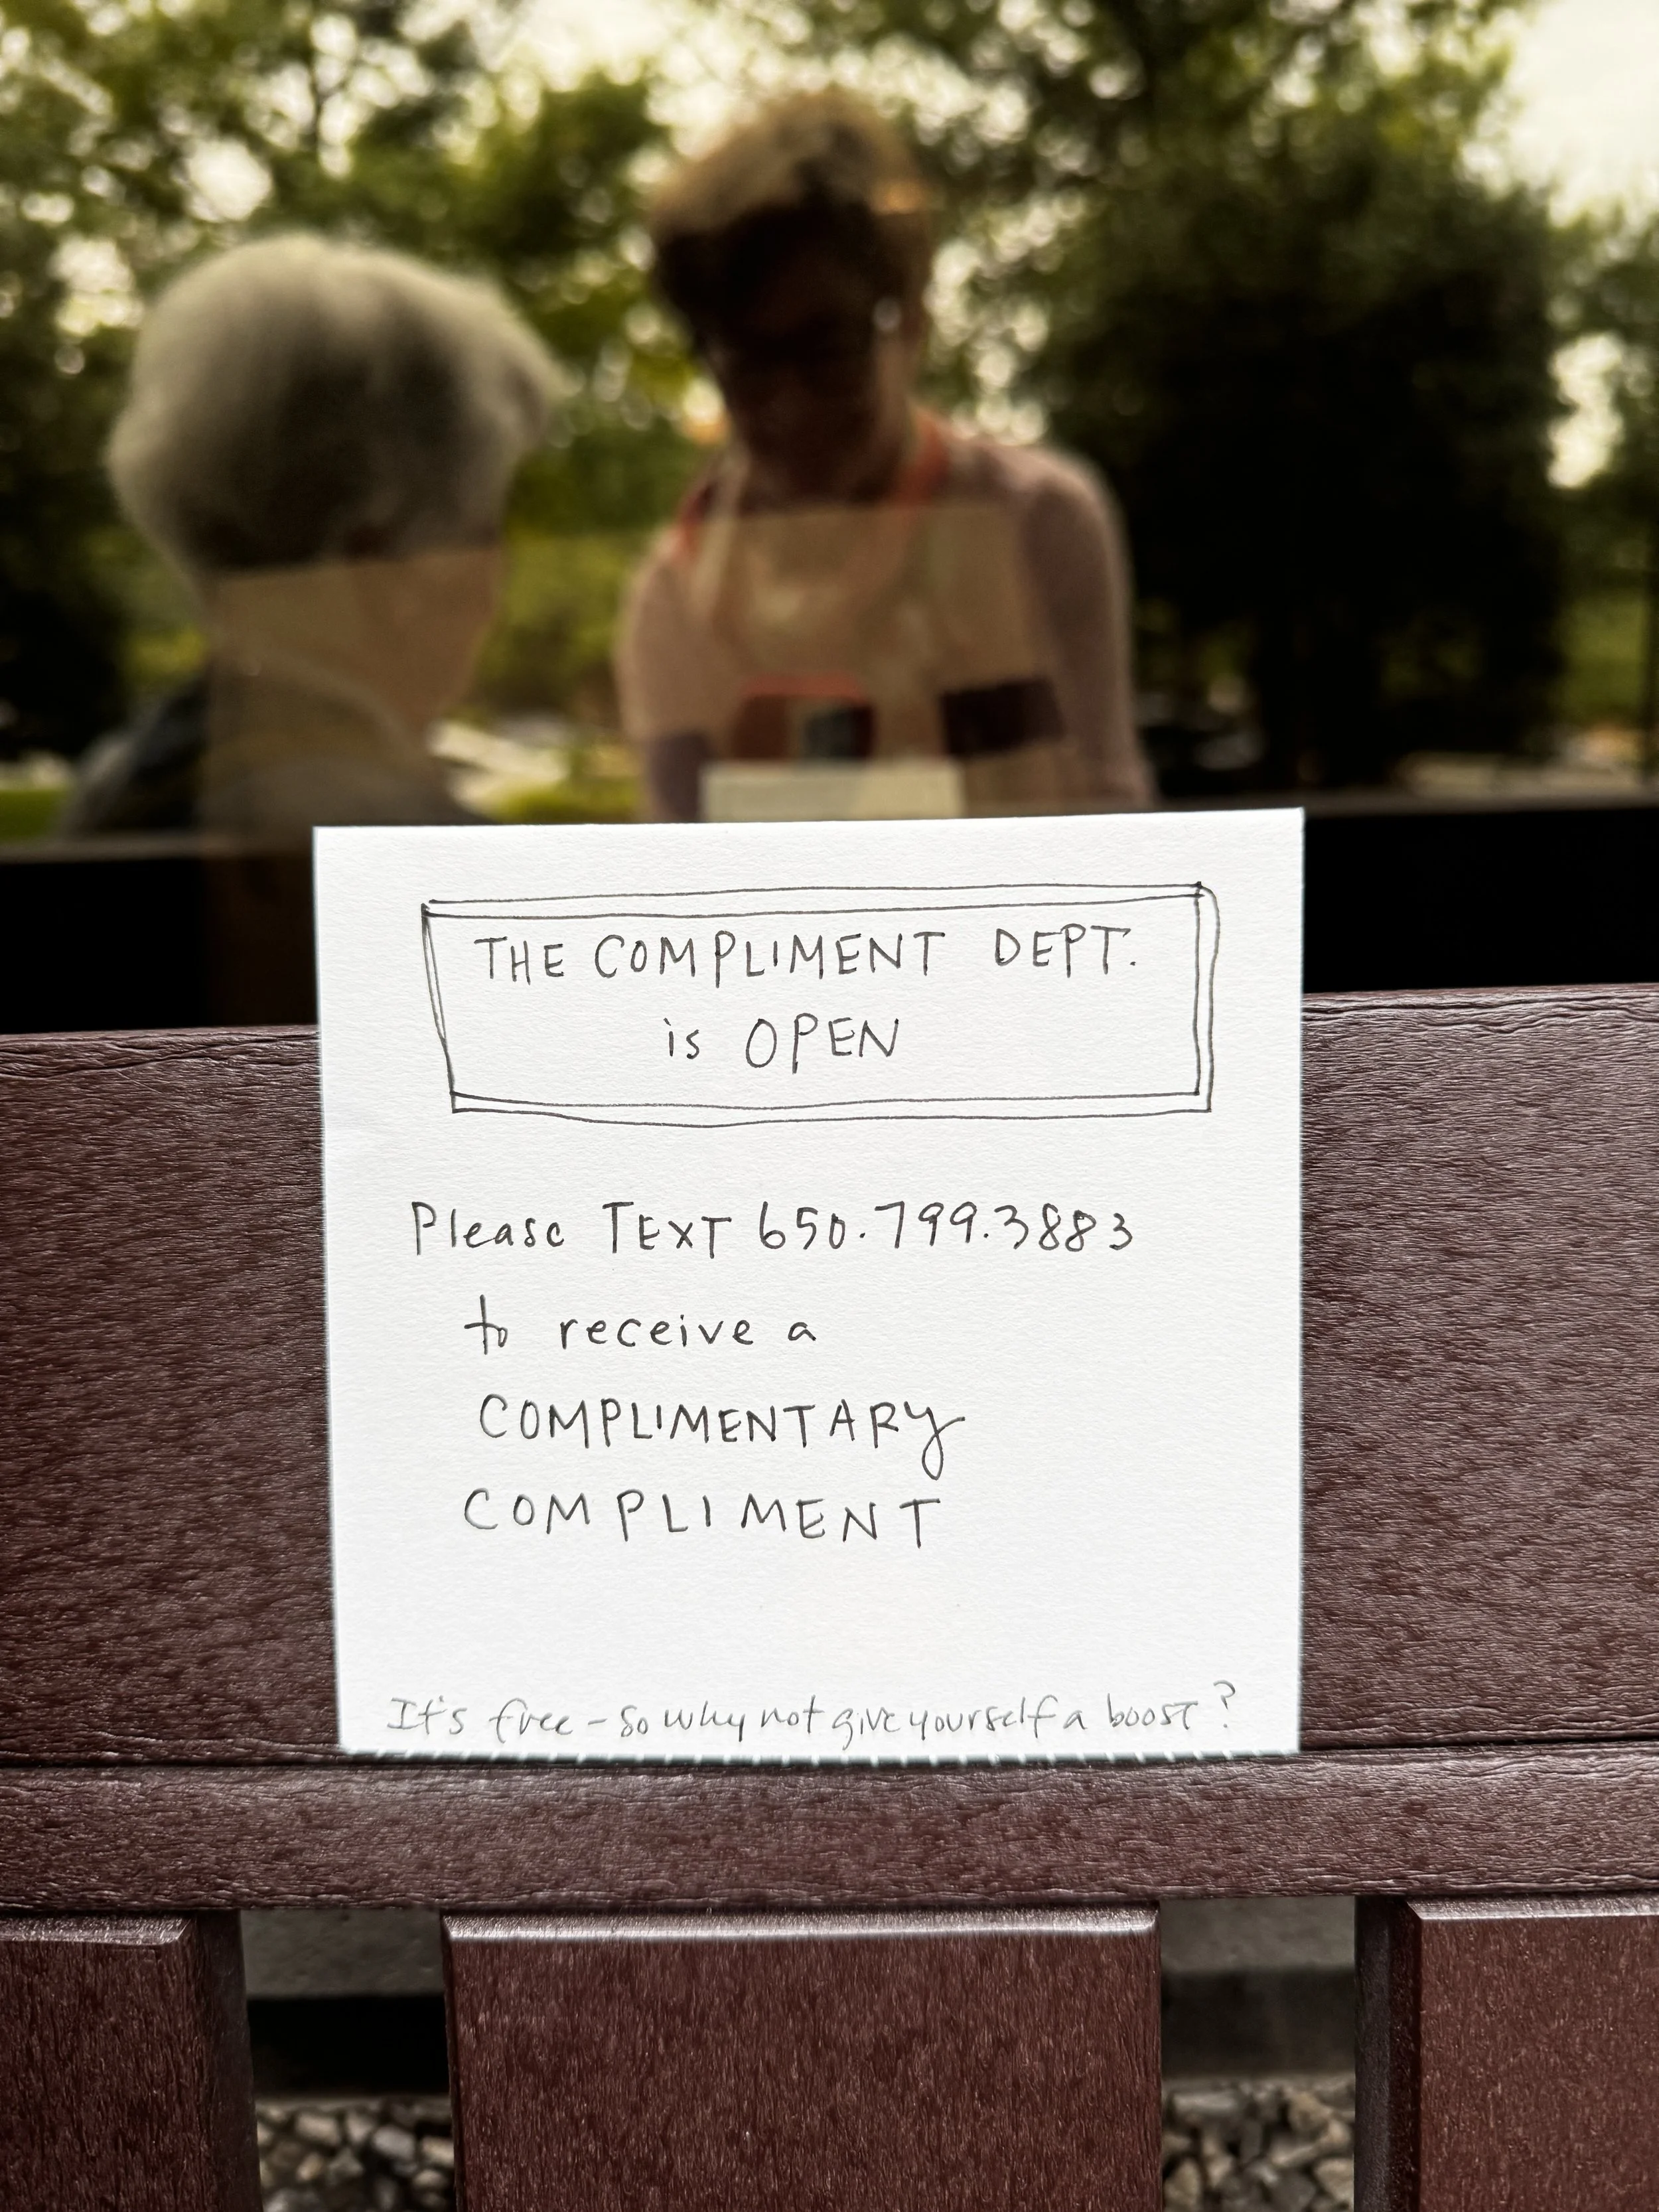 THE COMPLIMENT DEPT.
is OPEN
Please TEXT 650.799.3883
to receive a
COMPLIMENTARY
COMPLIMENT
It's free - so why not give yourself a boost?